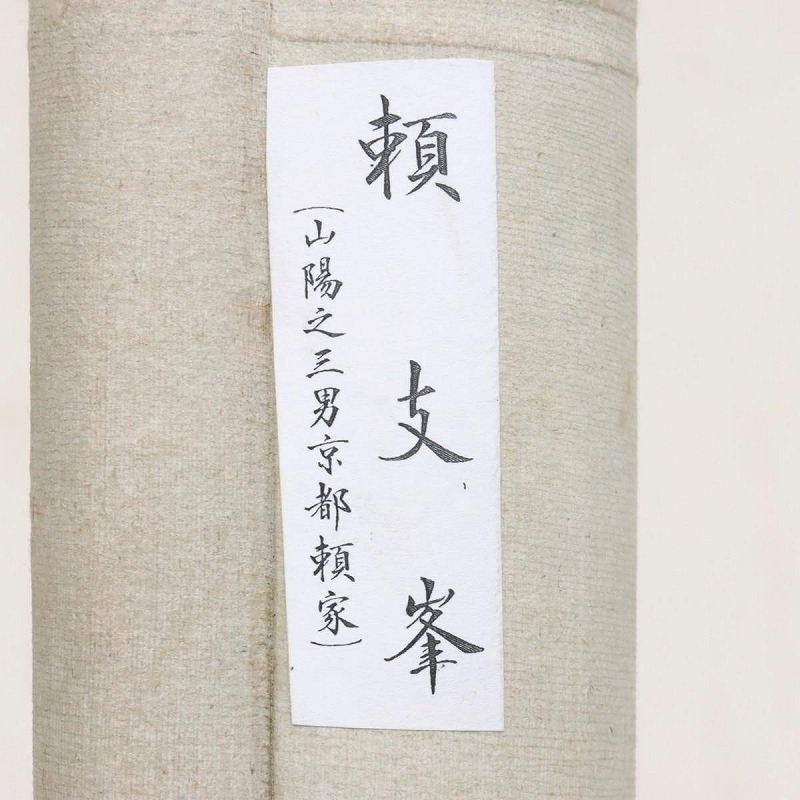 頼支峯
（山陽之三男京都頼家）